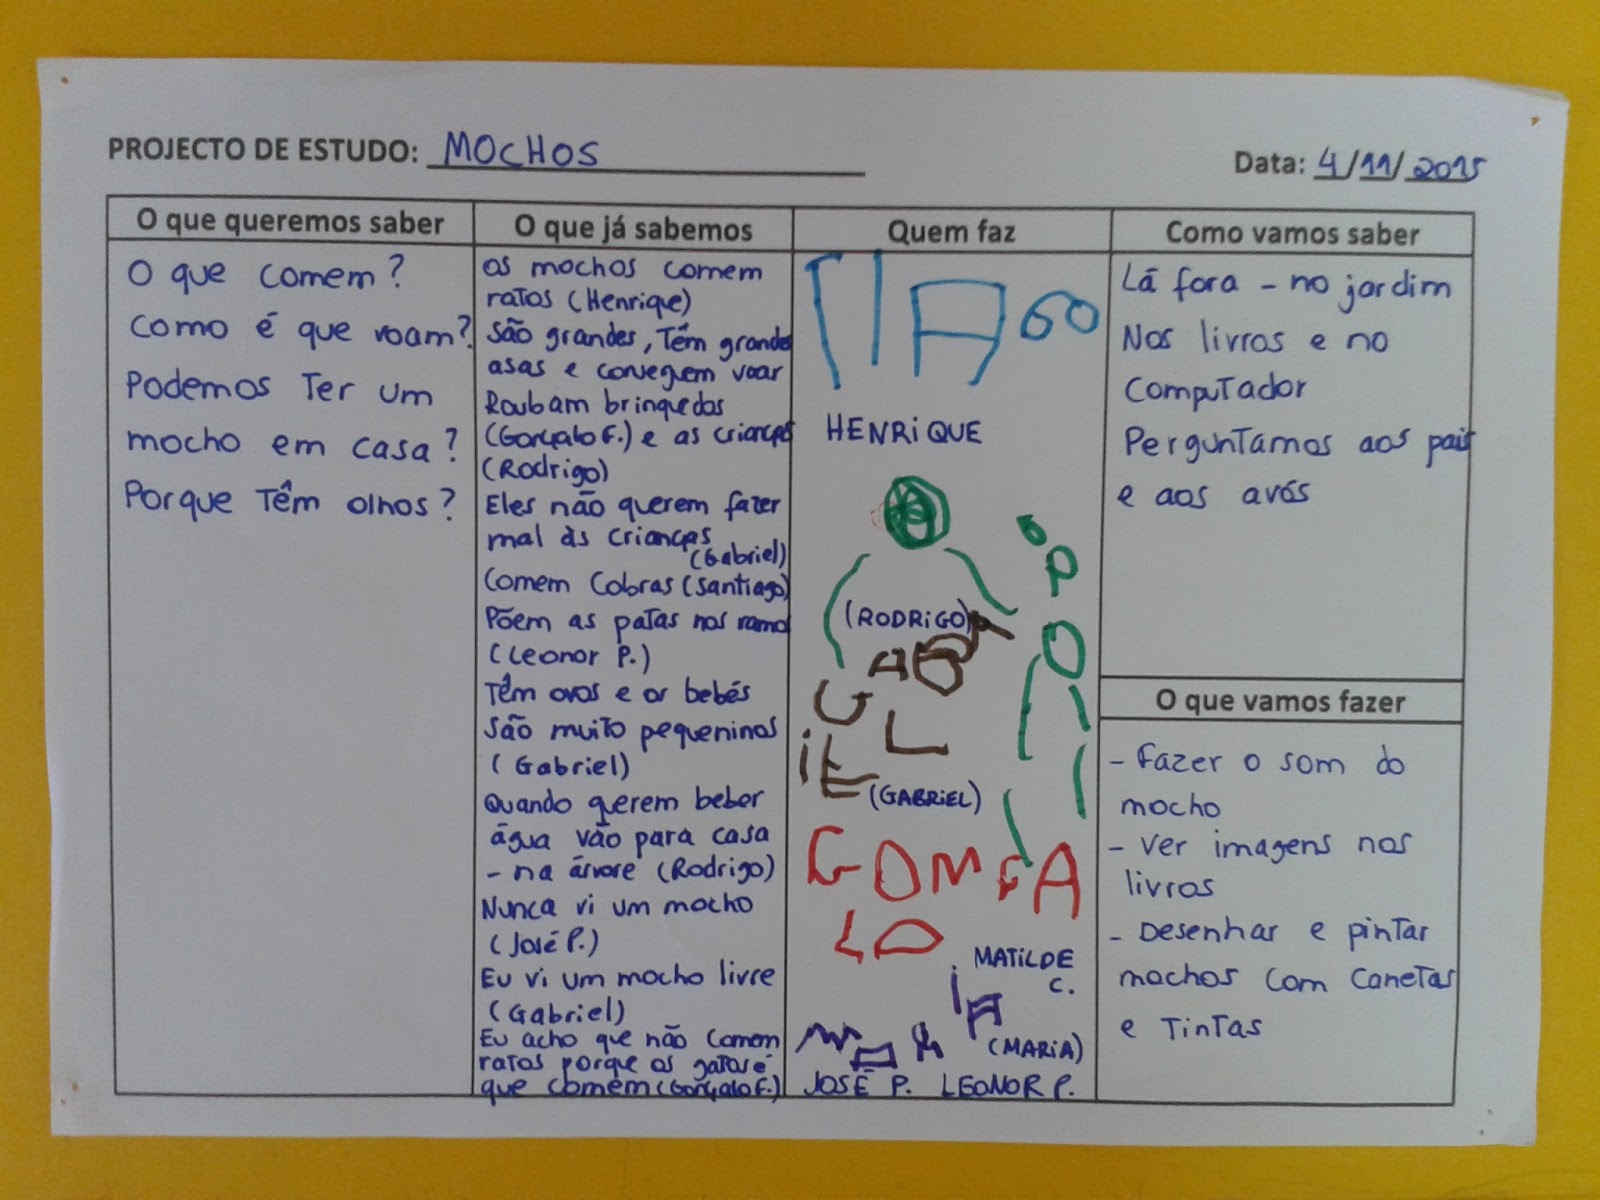 PROJECTO DE ESTUDO: MOCHOS
Data: 4/11/2015
O que queremos saber
O que comem?
Como é que voam?
Podemos Ter um
mocho em casa?
Porque Têm olhos?
O que já sabemos
os mochos comem
ratos (Henrique)
São grandes, Têm grandes
asas e conseguem voar
Roubam brinquedos
(Gonçalo F.) e as crianças
(Rodrigo)
Eles não querem fazer
mal às crianças
(Gabriel)
Comem Cobras (Santiago)
Põem as patas nos ramos
(Leonor P.)
Têm ovos e os bebés
São muito pequeninos
(Gabriel)
Quando querem beber
água vão para casa
- na árvore (Rodrigo)
Nunca vi um mocho
(José P.)
Eu vi um mocho livre
(Gabriel)
Eu acho que não comem
ratos porque os gatos é
que comem (Gonçalo F.)
Quem faz
TIAGO
HENRIQUE
(RODRIGO)
(GABRIEL)
GOMÇA
LO
MATILDE
C.
(MARIA)
JOSÉ P. LEONOR P.
Como vamos saber
Lá fora - no jardim
Nos livros e no
Computador
Perguntamos aos pais
e aos avós
O que vamos fazer
- Fazer o som do
mocho
- Ver imagens nos
livros
- Desenhar e pintar
mochos com canetas
e Tintas